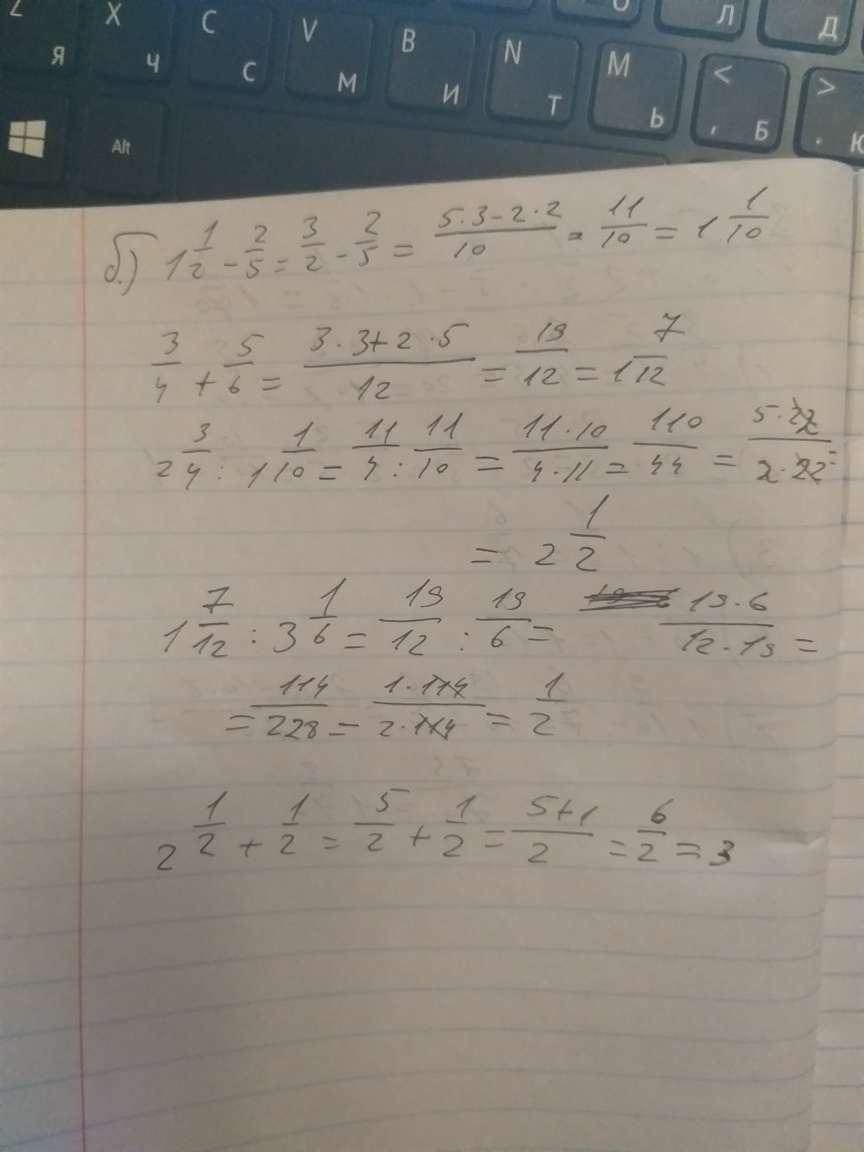 Z Я X Ч C С V М B И N Т M Ь < , Б > . Ю Л Д
Alt
б.) 1 1/2 - 2/5 = 3/2 - 2/5 = (5·3-2·2)/10 = 11/10 = 1 1/10
3/4 + 5/6 = (3·3+2·5)/12 = 19/12 = 1 7/12
2 3/4 : 1 1/10 = 11/4 : 11/10 = (11·10)/(4·11) = 110/44 = (5·22)/(2·22) =
= 2 1/2
1 7/12 : 3 1/6 = 19/12 : 19/6 = (19·6)/(12·19) =
= 114/228 = (1·114)/(2·114) = 1/2
2 1/2 + 1/2 = 5/2 + 1/2 = (5+1)/2 = 6/2 = 3